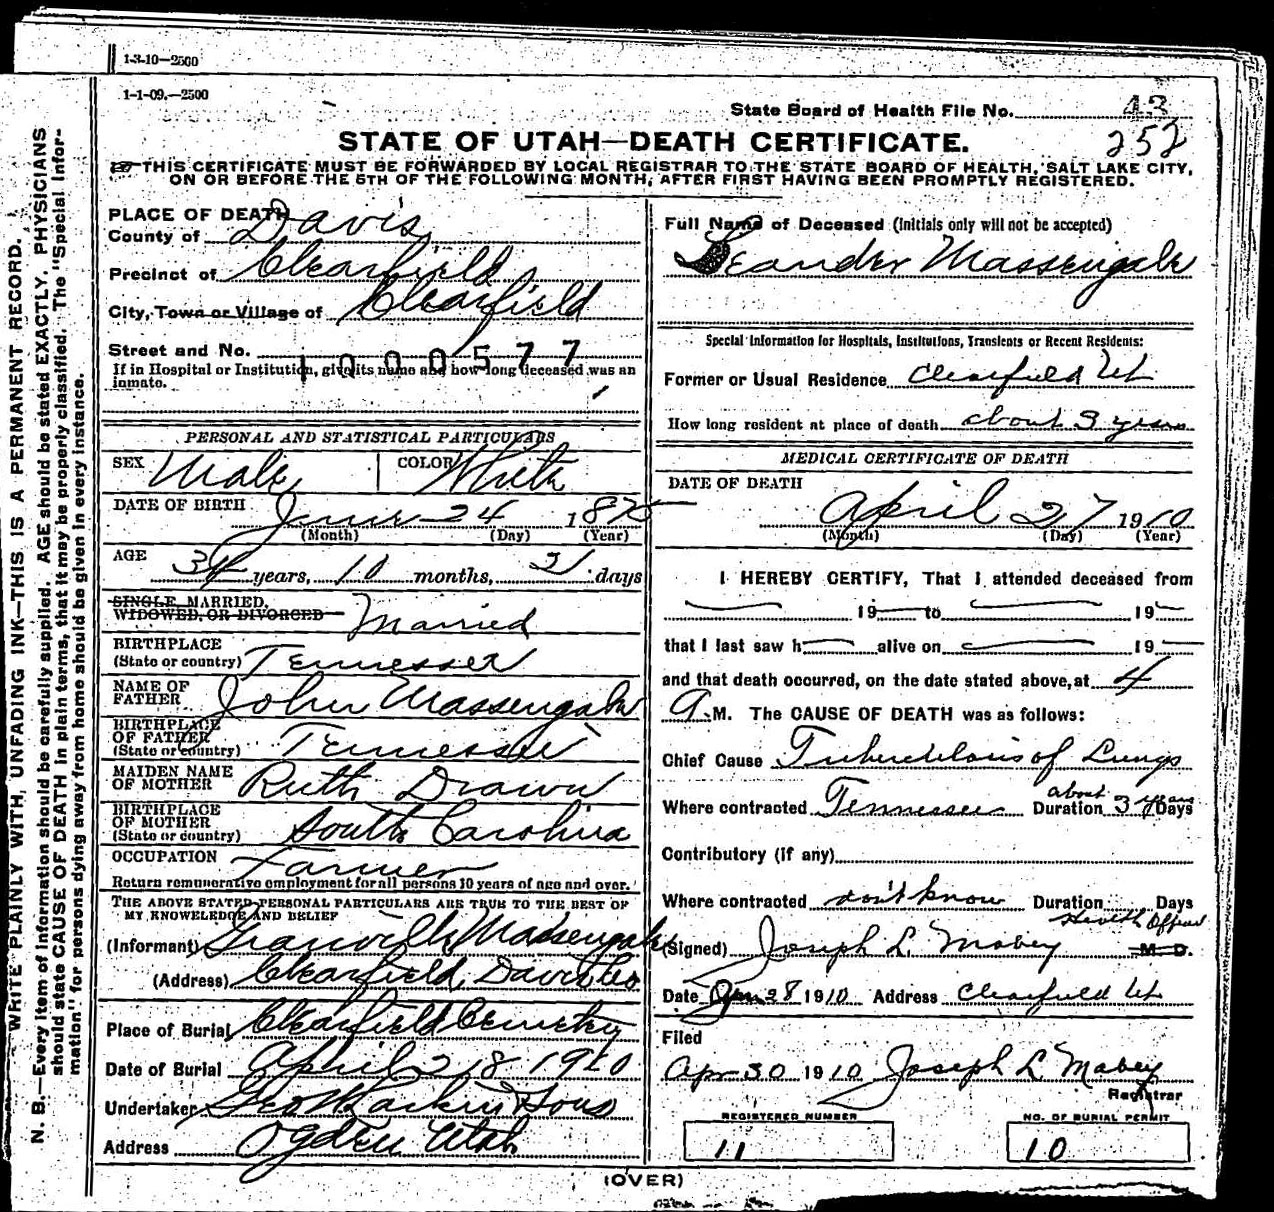 1-3-10—2500
1-1-09.—2500
State Board of Health File No. 43
252
STATE OF UTAH—DEATH CERTIFICATE.
THIS CERTIFICATE MUST BE FORWARDED BY LOCAL REGISTRAR TO THE STATE BOARD OF HEALTH, SALT LAKE CITY,
ON OR BEFORE THE 5TH OF THE FOLLOWING MONTH, AFTER FIRST HAVING BEEN PROMPTLY REGISTERED.
WRITE PLAINLY WITH, UNFADING INK—THIS IS A PERMANENT RECORD.
N. B.—Every item of information should be carefully supplied. AGE should be stated EXACTLY. PHYSICIANS
should state CAUSE OF DEATH in plain terms, that it may be properly classified. The "Special Infor-
mation" for persons dying away from home should be given in every instance.
PLACE OF DEATH
County of Davis
Precinct of Clearfield
City, Town or Village of Clearfield
Street and No.
1000577
If in Hospital or Institution, give its name and how long deceased was an
inmate.
PERSONAL AND STATISTICAL PARTICULARS
SEX Male COLOR White
DATE OF BIRTH June 24 1875
(Month) (Day) (Year)
AGE 34 years, 10 months, 3 days
SINGLE, MARRIED,
WIDOWED, OR DIVORCED Married
BIRTHPLACE
(State or country) Tennessee
NAME OF
FATHER John Massengale
BIRTHPLACE
OF FATHER
(State or country) Tennessee
MAIDEN NAME
OF MOTHER Ruth Drawn
BIRTHPLACE
OF MOTHER
(State or country) South Carolina
OCCUPATION Farmer
Return remunerative employment for all persons 10 years of age and over.
THE ABOVE STATED PERSONAL PARTICULARS ARE TRUE TO THE BEST OF
MY KNOWLEDGE AND BELIEF
(Informant) Granville Massengale
(Address) Clearfield, Davis Co
Place of Burial Clearfield Cemetery
Date of Burial April 28 1910
Undertaker Geo Larkin Sons
Address Ogden Utah
Full Name of Deceased (Initials only will not be accepted)
Leander Massengale
Special Information for Hospitals, Institutions, Transients or Recent Residents:
Former or Usual Residence Clearfield Ut
How long resident at place of death about 3 years
MEDICAL CERTIFICATE OF DEATH
DATE OF DEATH
April 27 1910
(Month) (Day) (Year)
I HEREBY CERTIFY, That I attended deceased from
19 to 19
that I last saw h alive on 19
and that death occurred, on the date stated above, at 4
a.M. The CAUSE OF DEATH was as follows:
Chief Cause Tuberculosis of Lungs
Where contracted Tennessee Duration about 3 years Days
Contributory (if any)
Where contracted don't know Duration Days
Health Officer
(Signed) Joseph L. Mabey M. D.
Date Apr 28 1910 Address Clearfield Ut
Filed
Apr 30 1910 Joseph L Mabey
Registrar
REGISTERED NUMBER NO. OF BURIAL PERMIT
11 10
(OVER)